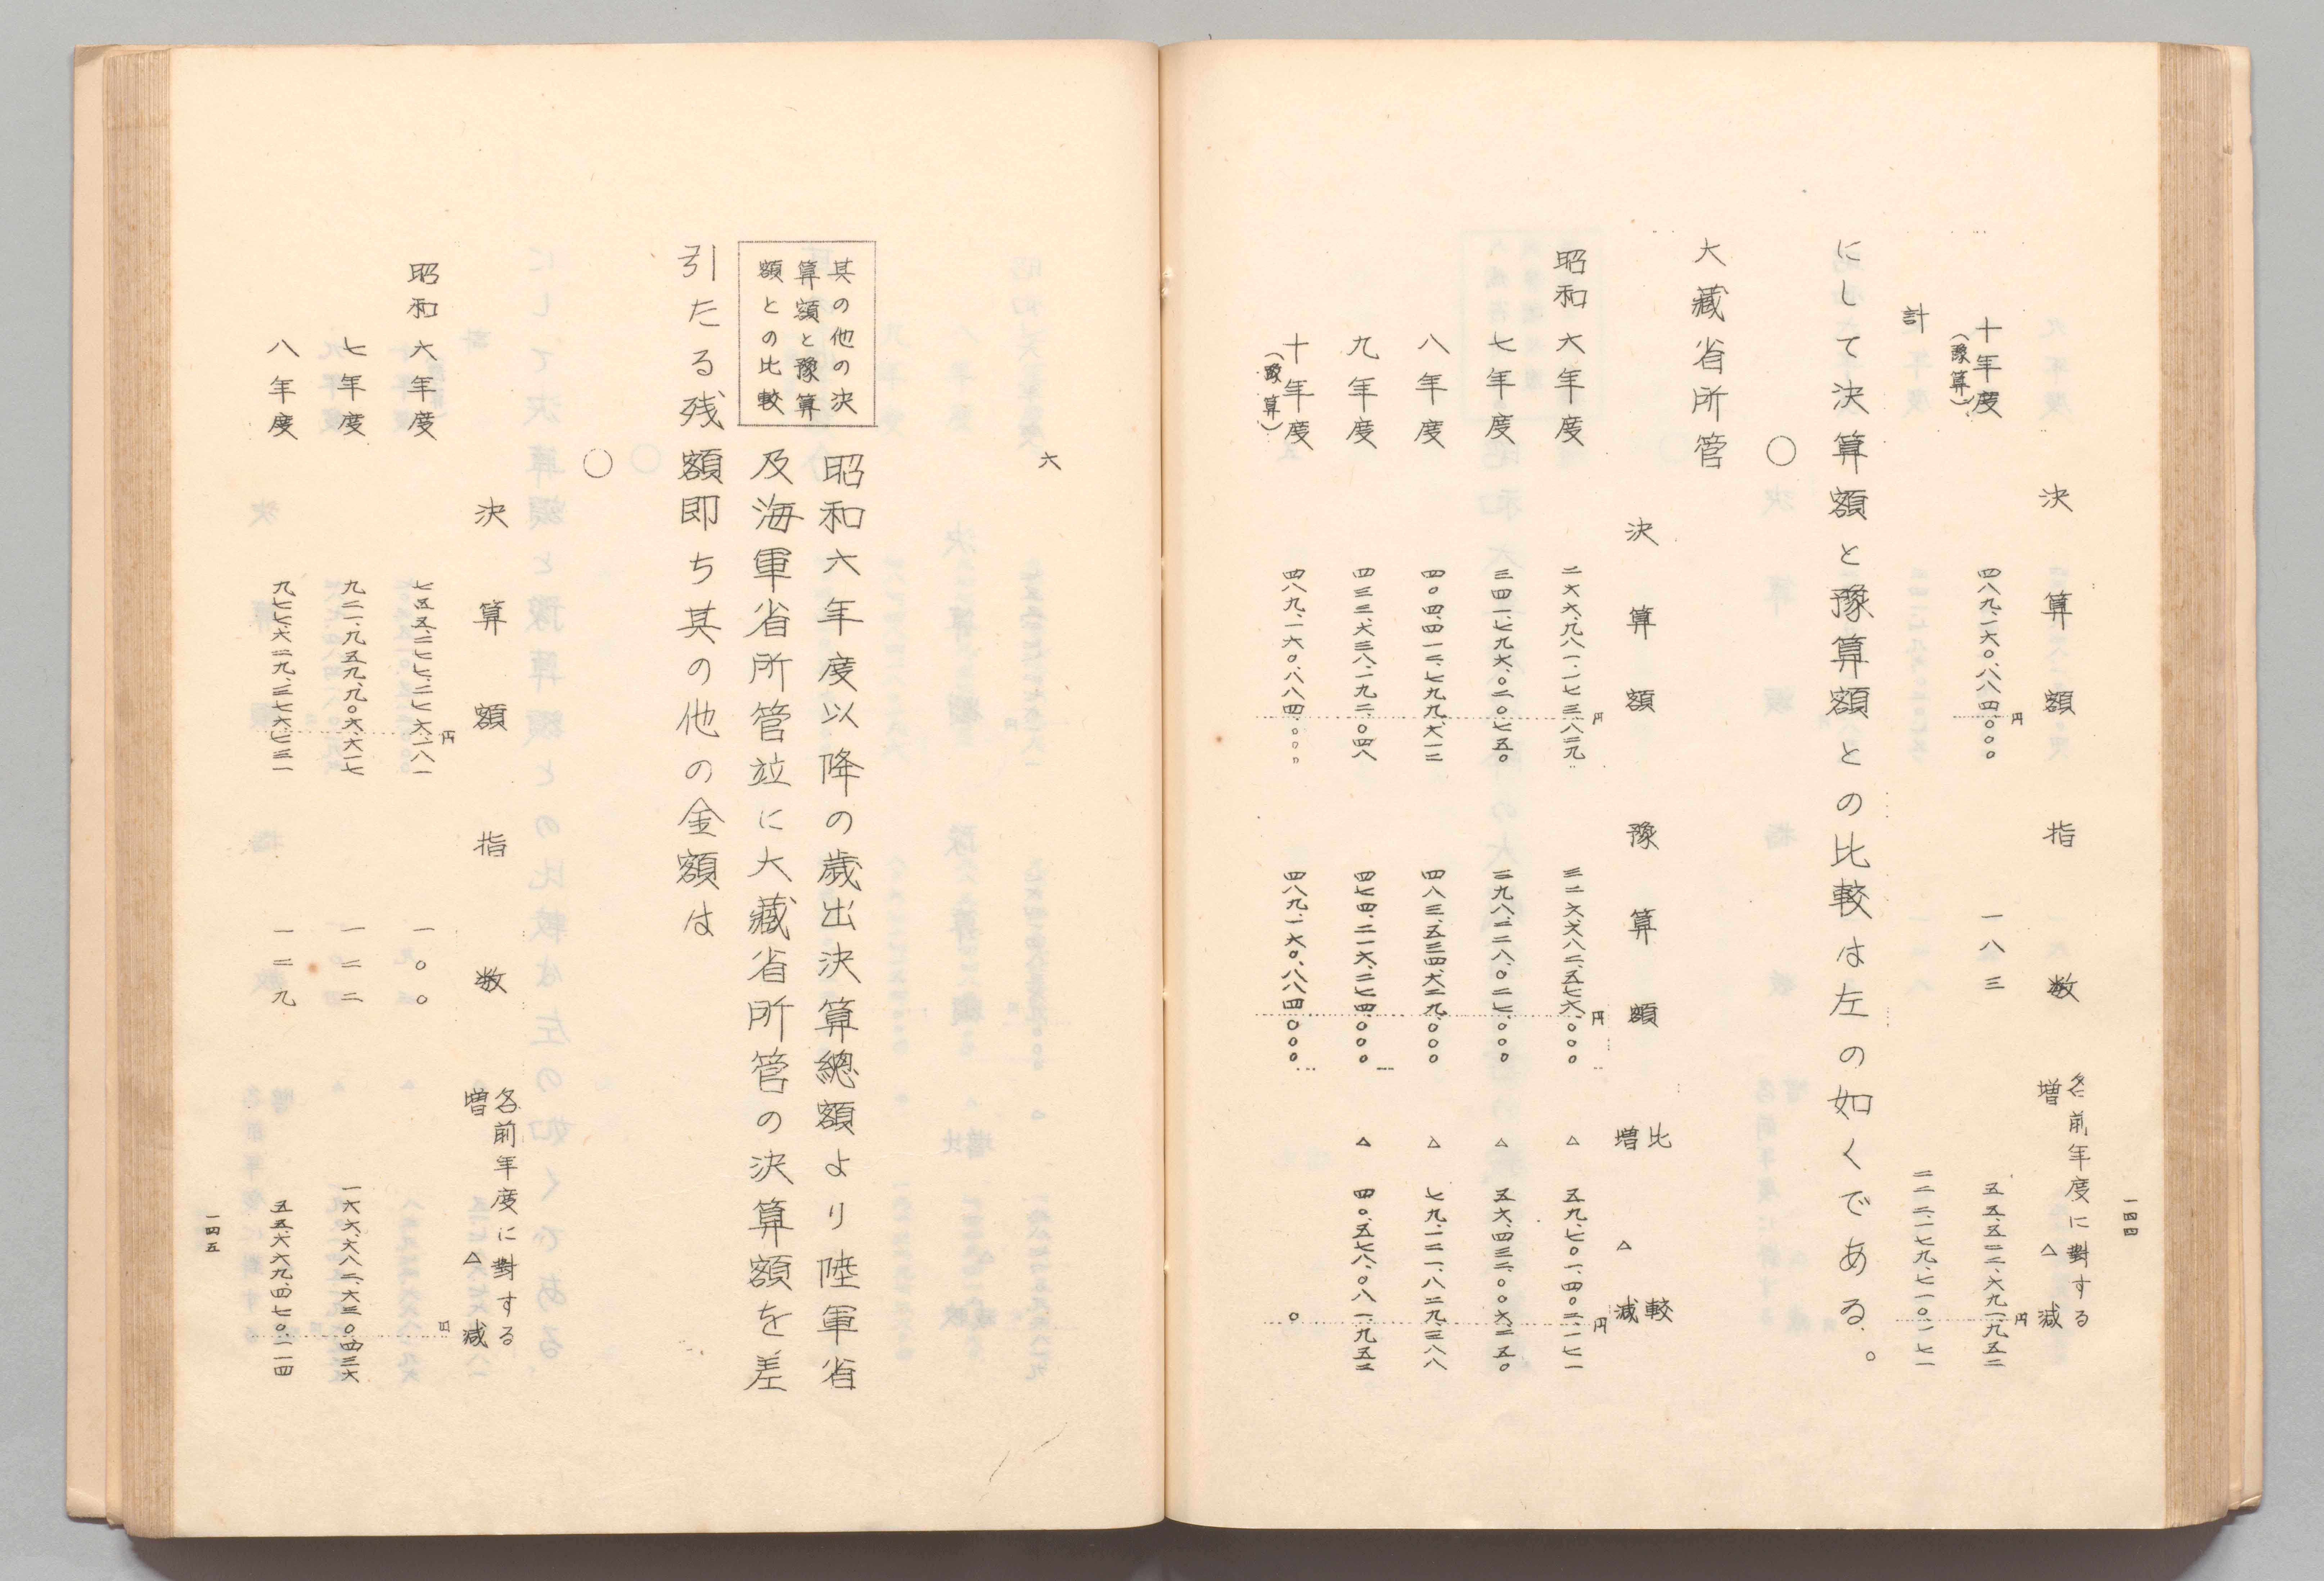 一四四
決算額 指数 各前年度に對する増△減
十年度(豫算) 四八九、一六〇、八八四、〇〇〇円 一八三 五五、五二二、六九一、九五二円
計 二二二、一七九、七一〇、一七一
にして決算額と豫算額との比較は左の如くである。
○
大藏省所管
決算額 豫算額 比較増△減
昭和六年度 二六六、九八一、一七三、八二九円 三二六、六八二、五七六、〇〇〇円 △ 五九、七〇一、四〇二、一七一円
七年度 三四一、七九六、〇二〇、七五〇 三九八、二二八、〇二七、〇〇〇 △ 五六、四三二、〇〇六、二五〇
八年度 四〇四、四一二、七九九、六一二 四八三、五三四、六二九、〇〇〇 △ 七九、一二一、八二九、三八八
九年度 四三三、六三八、一九二、〇四八 四七四、二一六、二七四、〇〇〇 △ 四〇、五七八、〇八一、九五二
十年度(豫算) 四八九、一六〇、八八四、〇〇〇 四八九、一六〇、八八四、〇〇〇 〇
六
其の他の決
算額と豫算
額との比較
昭和六年度以降の歳出決算總額より陸軍省
及海軍省所管竝に大藏省所管の決算額を差
引たる残額即ち其の他の金額は
○
決算額 指数 各前年度に對する増△減
昭和六年度 七五五、二七七、二七六、一八一円 一〇〇 円
七年度 九二一、九五九、九〇六、六一七 一二二 一六六、六八二、六三〇、四三六
八年度 九七七、六二九、三七六、七三一 一二九 五五、六六九、四七〇、一一四
一四五